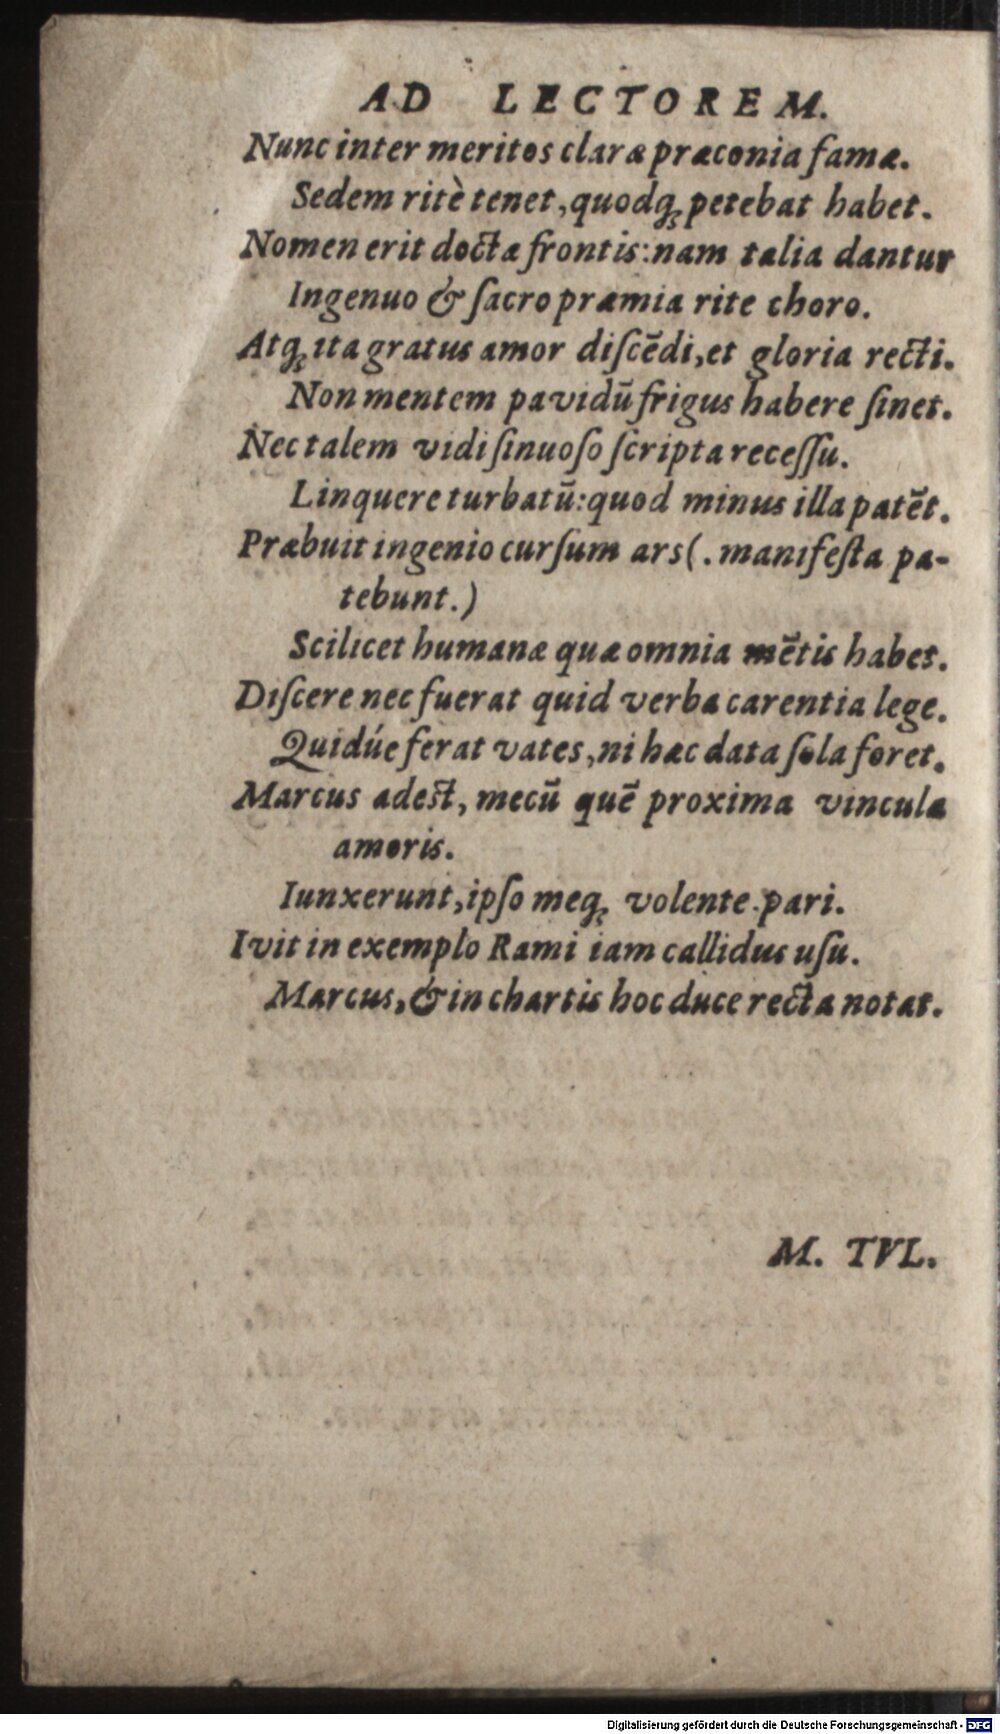 AD LECTOREM.
Nunc inter meritos claræ præconia famæ.
Sedem ritè tenet, quodq; petebat habet.
Nomen erit doctæ frontis: nam talia dantur
Ingenuo & ſacro præmia rite choro.
Atq; ita gratus amor diſcēdi, et gloria recti.
Non mentem pavidū frigus habere ſinet.
Nec talem vidi ſinuoſo ſcripta receſſu.
Linquere turbatū: quod minus illa patēt.
Præbuit ingenio curſum ars (. manifeſta pa-
tebunt.)
Scilicet humanæ quæ omnia mētis habet.
Diſcere nec fuerat quid verba carentia lege.
Quidúe ferat vates, ni hæc data ſola foret.
Marcus adeſt, mecū quē proxima vincula
amoris.
Iunxerunt, ipſo meq; volente pari.
Ivit in exemplo Rami iam callidus uſu.
Marcus, & in chartis hoc duce recta notat.
M. TVL.
Digitalisierung gefördert durch die Deutsche Forschungsgemeinschaft - DFG